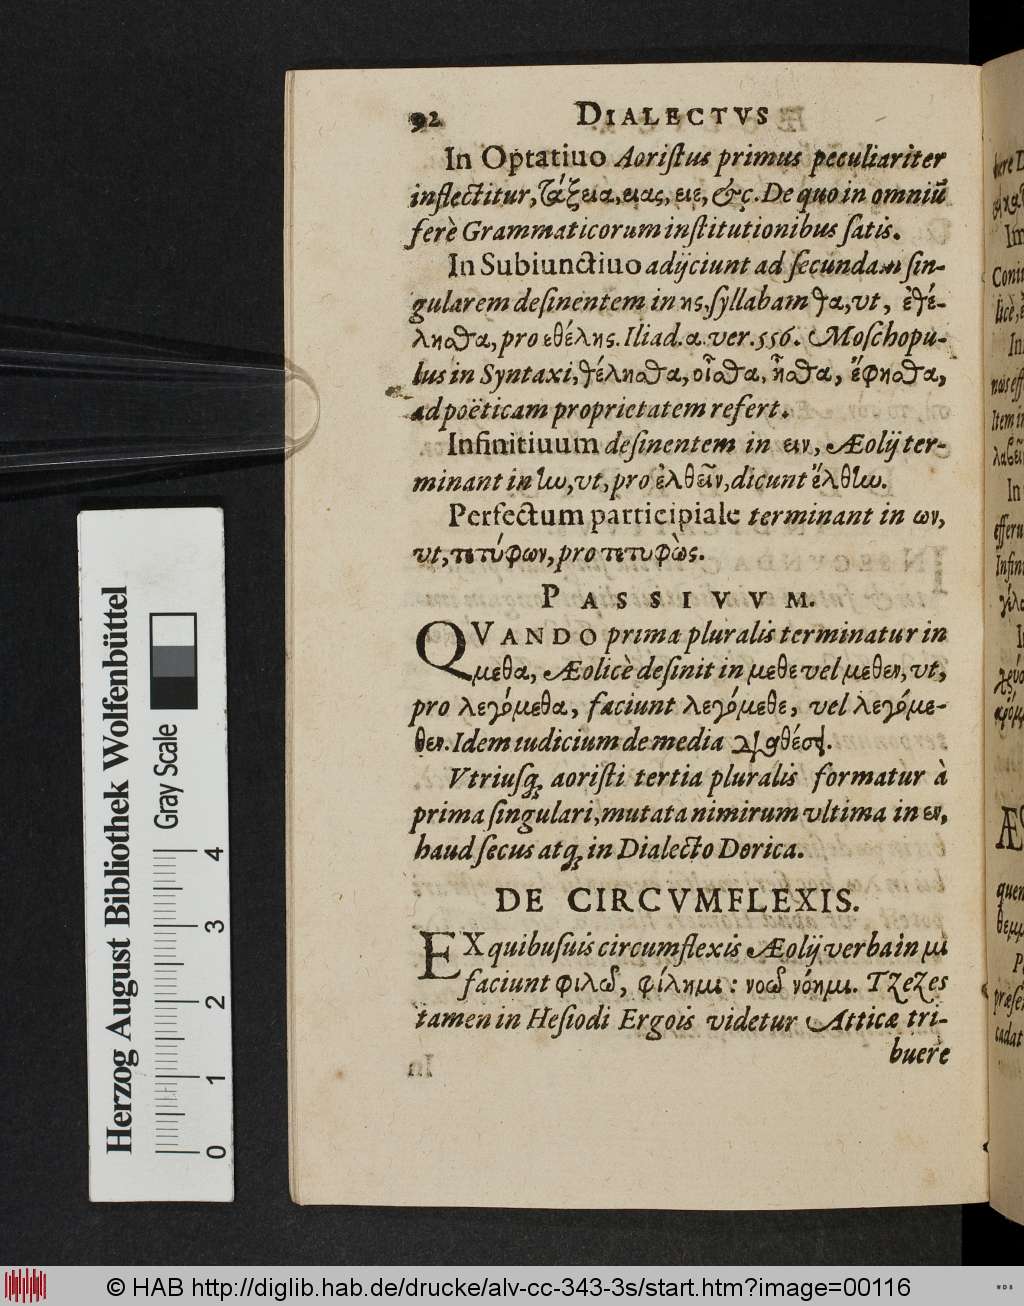 92 DIALECTVS
In Optatiuo Aoriſtus primus peculiariter
inflectitur, τάξεια, ειας, ειε, &c. De quo in omniū
ferè Grammaticorum inſtitutionibus ſatis.
In Subiunctiuo adijciunt ad ſecundam ſin-
gularem deſinentem in ης, ſyllabam θα, vt, ἐθέ-
λησθα, pro εθέλης. Iliad. α. ver. 556. Moſchopu-
lus in Syntaxi, θέλησθα, οἶσθα, ἦσθα, ἔφησθα,
ad poëticam proprietatem refert.
Infinitiuum deſinentem in ειν, Æolij ter-
minant in ην, vt, pro ἐλθεῖν, dicunt ἔλθην.
Perfectum participiale terminant in ων,
vt, τετύφων, pro τετυφὼς.
PASSIVVM.
QVANDO prima pluralis terminatur in
μεθα, Æolicè deſinit in μεθε vel μεθεν, vt,
pro λεγόμεθα, faciunt λεγόμεθε, vel λεγόμε-
θεν. Idem iudicium de media διαθέσει.
Vtriuſq; aoriſti tertia pluralis formatur à
prima ſingulari, mutata nimirum vltima in εν,
haud ſecus atq; in Dialecto Dorica.
DE CIRCVMFLEXIS.
EX quibuſuis circumflexis Æolij verba in μι
faciunt φιλῶ, φίλημι : νοῶ νόημι. Tzezes
tamen in Heſiodi Ergois videtur Atticæ tri-
buere
Herzog August Bibliothek Wolfenbüttel
Gray Scale
0 1 2 3 4
© HAB http://diglib.hab.de/drucke/alv-cc-343-3s/start.htm?image=00116